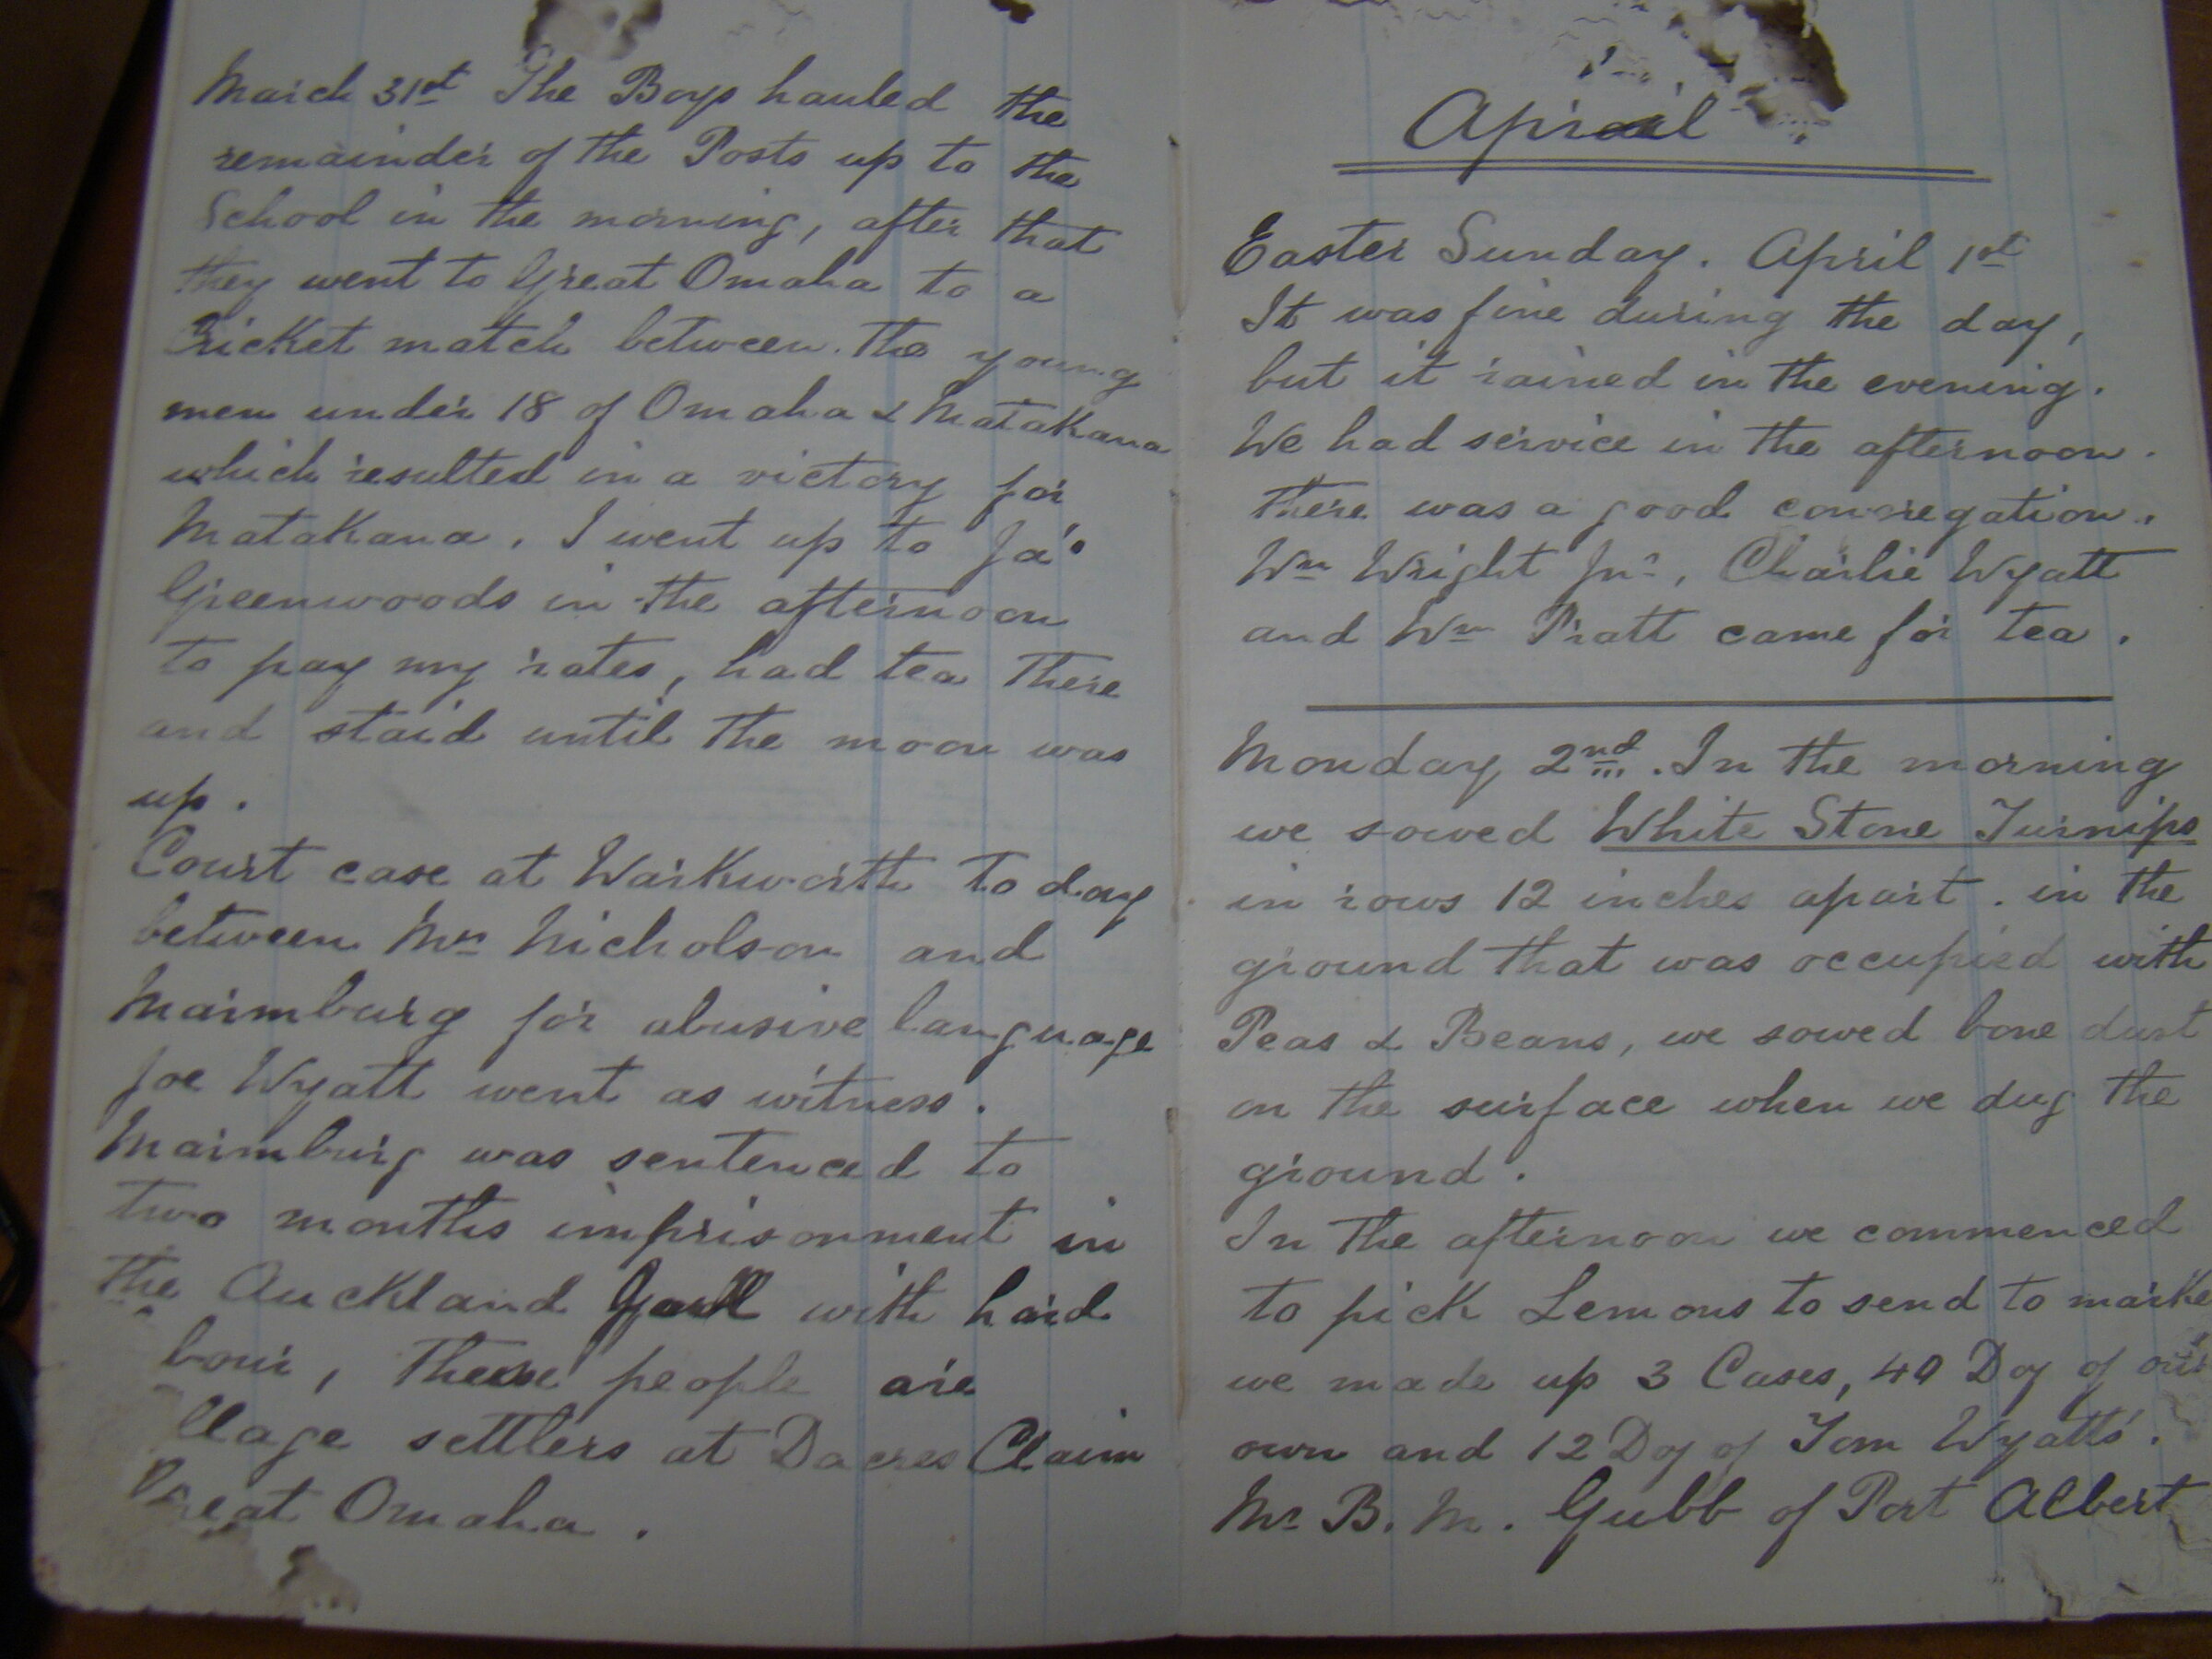 March 31st The Boys hauled the
remainder of the Posts up to the
School in the morning, after that
they went to Great Omaha to a
Cricket match between the young
men under 18 of Omaha & Matakana
which resulted in a victory for
Matakana. I went up to Ja's
Greenwoods in the afternoon
to pay my rates, had tea there
and staid until the moon was
up.
Court case at Warkworth to day
between Mrs Nicholson and
Maimburg for abusive language
Joe Wyatt went as witness.
Maimburg was sentenced to
two months imprisonment in
the Auckland with hard
bour, These people are
llage settlers at Dacres Claim
Great Omaha.
April
Easter Sunday. April 1st
It was fine during the day,
but it rained in the evening.
We had service in the afternoon.
there was a good congregation.
Wm Wright Jnr, Charlie Wyatt
and Wm Pratt came for tea.
Monday 2nd. In the morning
we sowed White Stone Turnips
in rows 12 inches apart. in the
ground that was occupied with
Peas & Beans, we sowed bone dust
on the surface when we dug the
ground.
In the afternoon we commenced
to pick Lemons to send to marke
we made up 3 Cases, 40 Doz of our
own and 12 Doz of Tom Wyatts'.
Mr B. M. Gubb of Port Albert